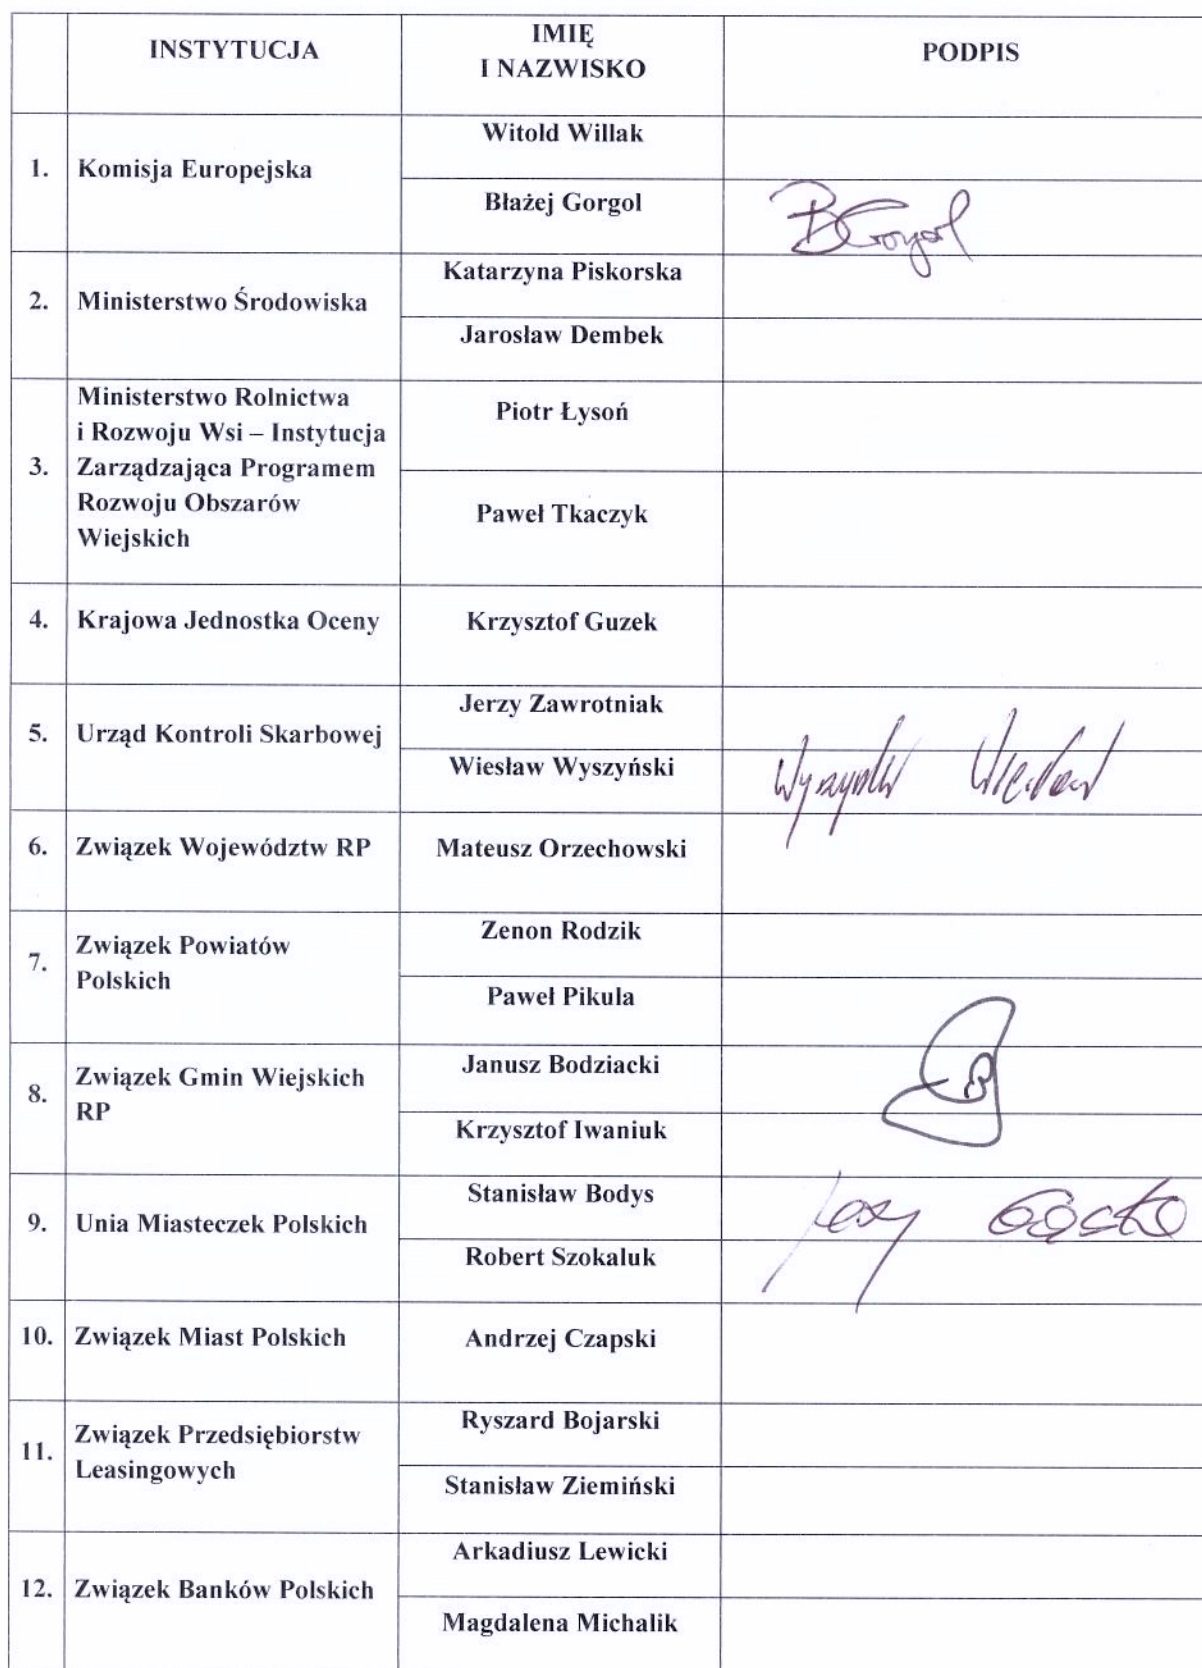 INSTYTUCJA
IMIĘ
I NAZWISKO
PODPIS
1.
Komisja Europejska
Witold Willak
Błażej Gorgol
BGorgol
2.
Ministerstwo Środowiska
Katarzyna Piskorska
Jarosław Dembek
3.
Ministerstwo Rolnictwa
i Rozwoju Wsi – Instytucja
Zarządzająca Programem
Rozwoju Obszarów
Wiejskich
Piotr Łysoń
Paweł Tkaczyk
4.
Krajowa Jednostka Oceny
Krzysztof Guzek
5.
Urząd Kontroli Skarbowej
Jerzy Zawrotniak
Wiesław Wyszyński
6.
Związek Województw RP
Mateusz Orzechowski
7.
Związek Powiatów
Polskich
Zenon Rodzik
Paweł Pikula
8.
Związek Gmin Wiejskich
RP
Janusz Bodziacki
Krzysztof Iwaniuk
9.
Unia Miasteczek Polskich
Stanisław Bodys
Robert Szokaluk
10.
Związek Miast Polskich
Andrzej Czapski
11.
Związek Przedsiębiorstw
Leasingowych
Ryszard Bojarski
Stanisław Ziemiński
12.
Związek Banków Polskich
Arkadiusz Lewicki
Magdalena Michalik